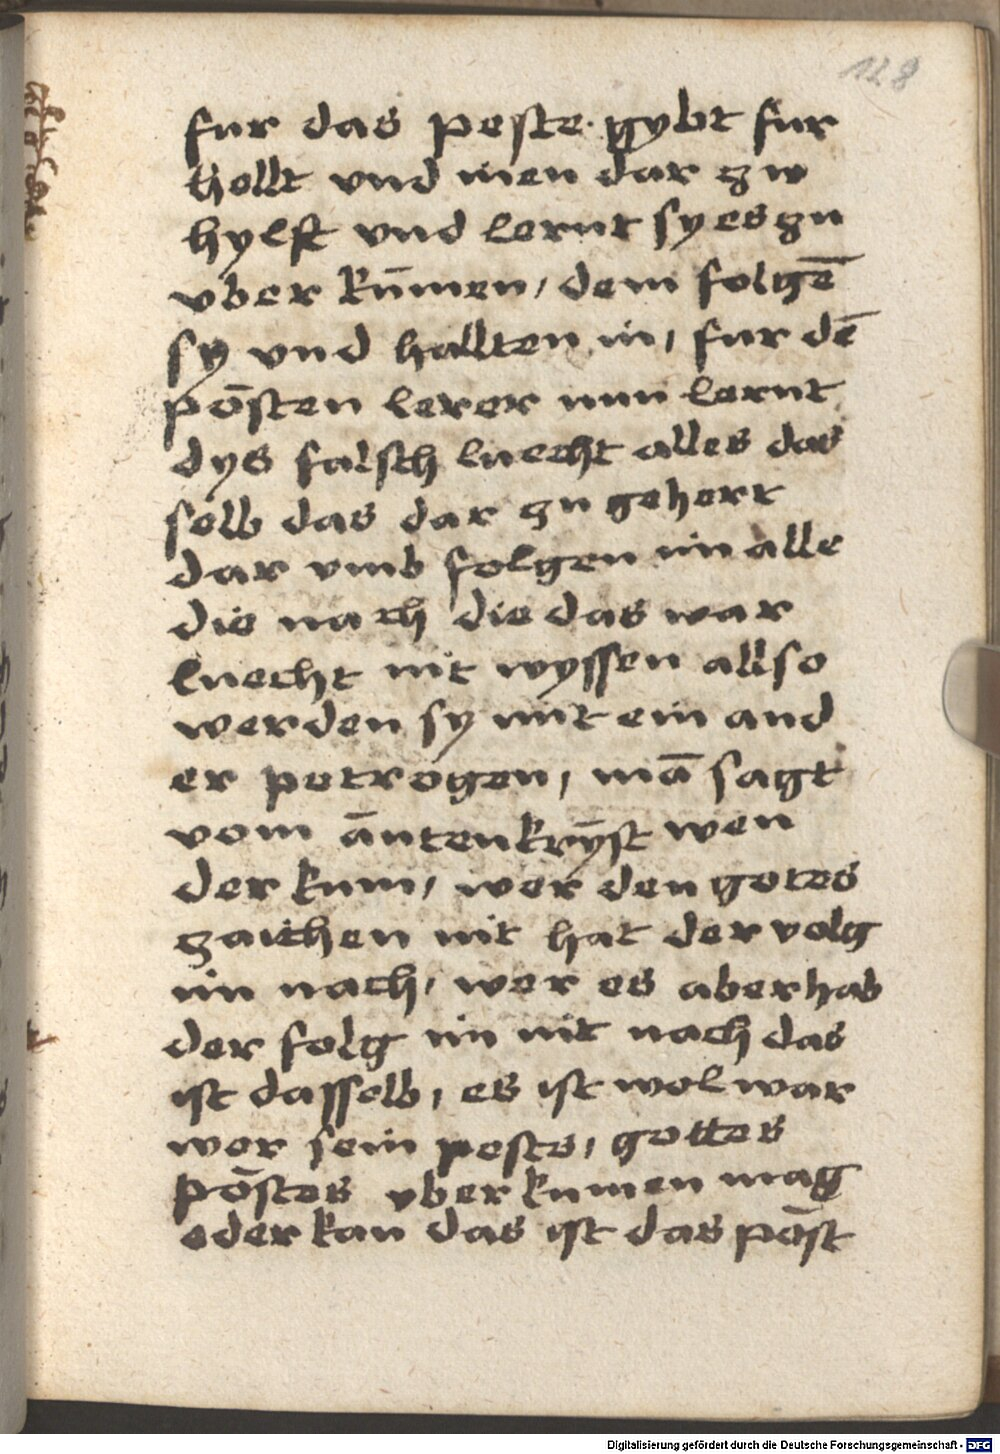 128
fur das peste gybt fur
hollt vnd inen dar zw
hylft vnd lernt sy es zu
vber kūmen, dem folgē
sy vnd hallten in, fur dē
pōsten lerer nun lernt
dys falsch lnecht alles das
selb das dar zu gehort
dar vmb folgen im alle
die nach die das war
lnecht nit wyssen allso
werden sy mit ein and
er petrogen, mā sagt
vom āntenkrȳst wen
der kum, wer den gotes
zaichen nit hat der volg
im nach, wer es aber hab
der folg im nit nach das
ist dasselb, es ist wol war
wer sein pests, gottes
pōstes vber kumen mag
oder kan das ist das pāst
Digitalisierung gefördert durch die Deutsche Forschungsgemeinschaft - DFG